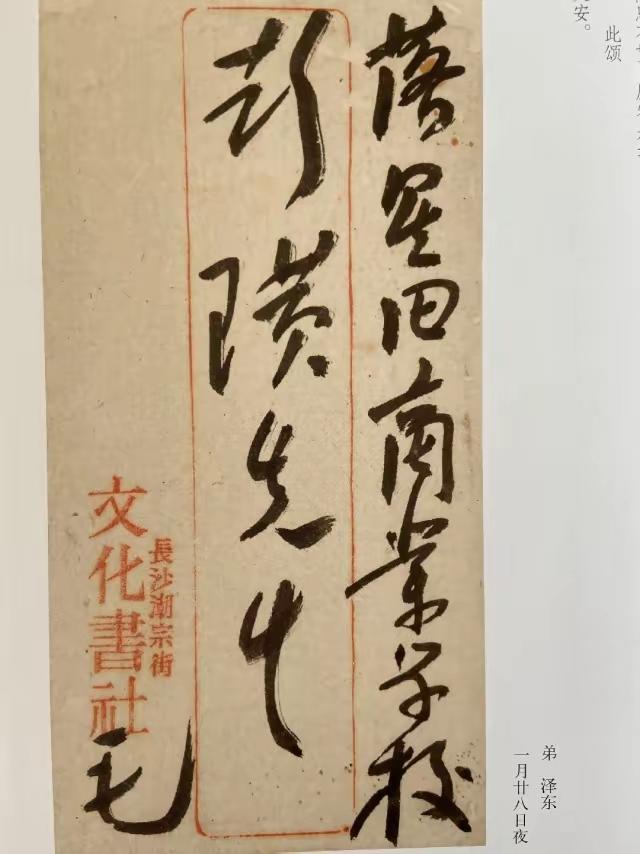 此颂
安。
弟 泽东
一月廿八日夜
落星田商業学校
彭璜先生
長沙潮宗街
文化書社
毛